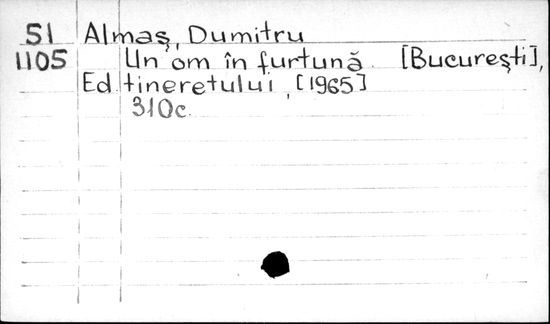 51 Almaş, Dumitru
1105 Un om în furtună [Bucureşti],
Ed. tineretului, [1965]
310c.